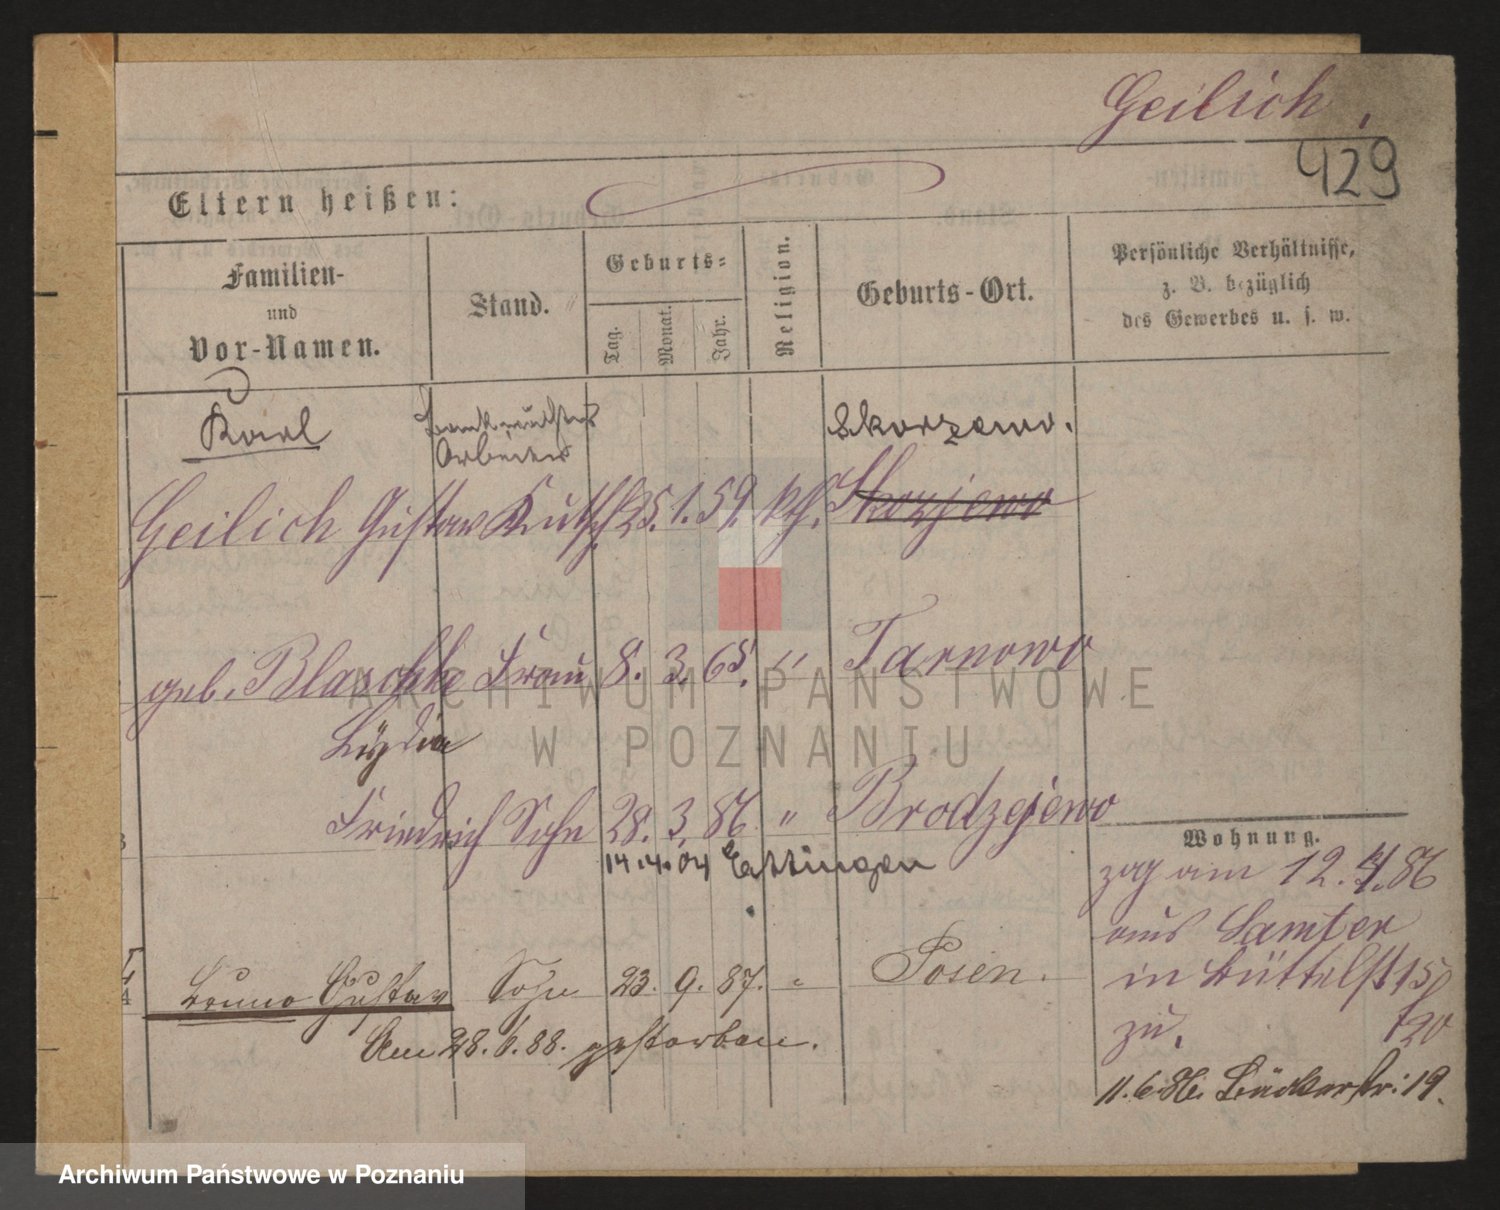 Geilich,
429
Eltern heißen:
Familien-
und
Vor-Namen.
Stand.
Geburts-
Tag.
Monat.
Jahr.
Religion.
Geburts-Ort.
Persönliche Verhältnisse,
z. B. bezüglich
des Gewerbes u. s. w.
Karl
Arbeiter
Skorzewo.
Geilich Gustav Kutsch. 25. 1. 59. Skorzewo
geb. Blaschke Frau 8. 3. 65. " Tarnowo
Lydia
Friedrich Sohn 28. 3. 86 " Brodzejewo
14.4.04 Ettingen
Wohnung.
zog am 12.4.86
aus Samter
in Büttelst 15/
zu. t20
Bruno Gustav Sohn 23. 9. 87. " Posen.
Am 28.6.88. gestorben.
11.6.86. Bäckerstr: 19.
ARCHIWUM PAŃSTWOWE
W POZNANIU
Archiwum Państwowe w Poznaniu